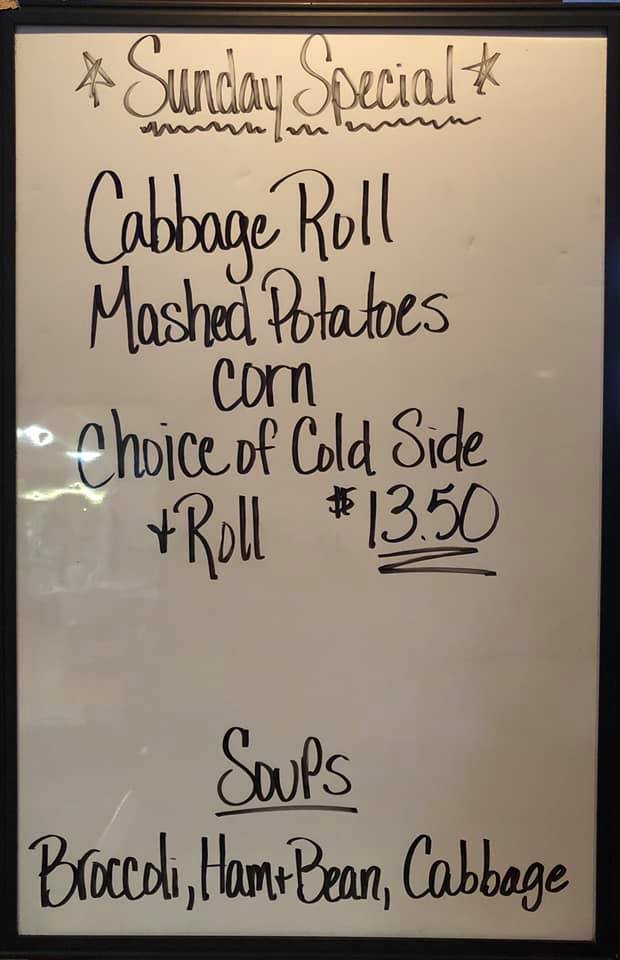 ☆ Sunday Special ☆
Cabbage Roll
Mashed Potatoes
corn
Choice of Cold Side
+ Roll $13.50
Soups
Broccoli, Ham + Bean, Cabbage